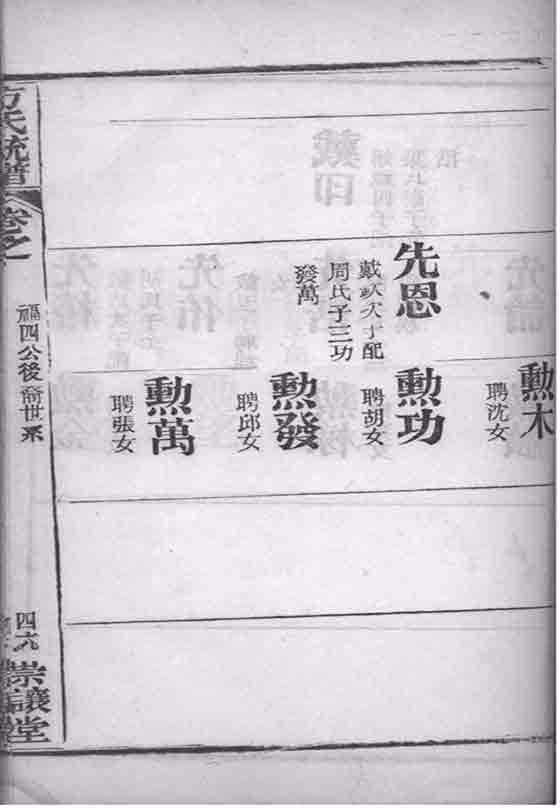 勲木
聘沈女
先恩
戴欽次子配
周氏子三功
發萬
勲功
聘胡女
勲發
聘邱女
勲萬
聘張女
方氏統譜
卷之
福四公後裔世系
四六
崇讓堂